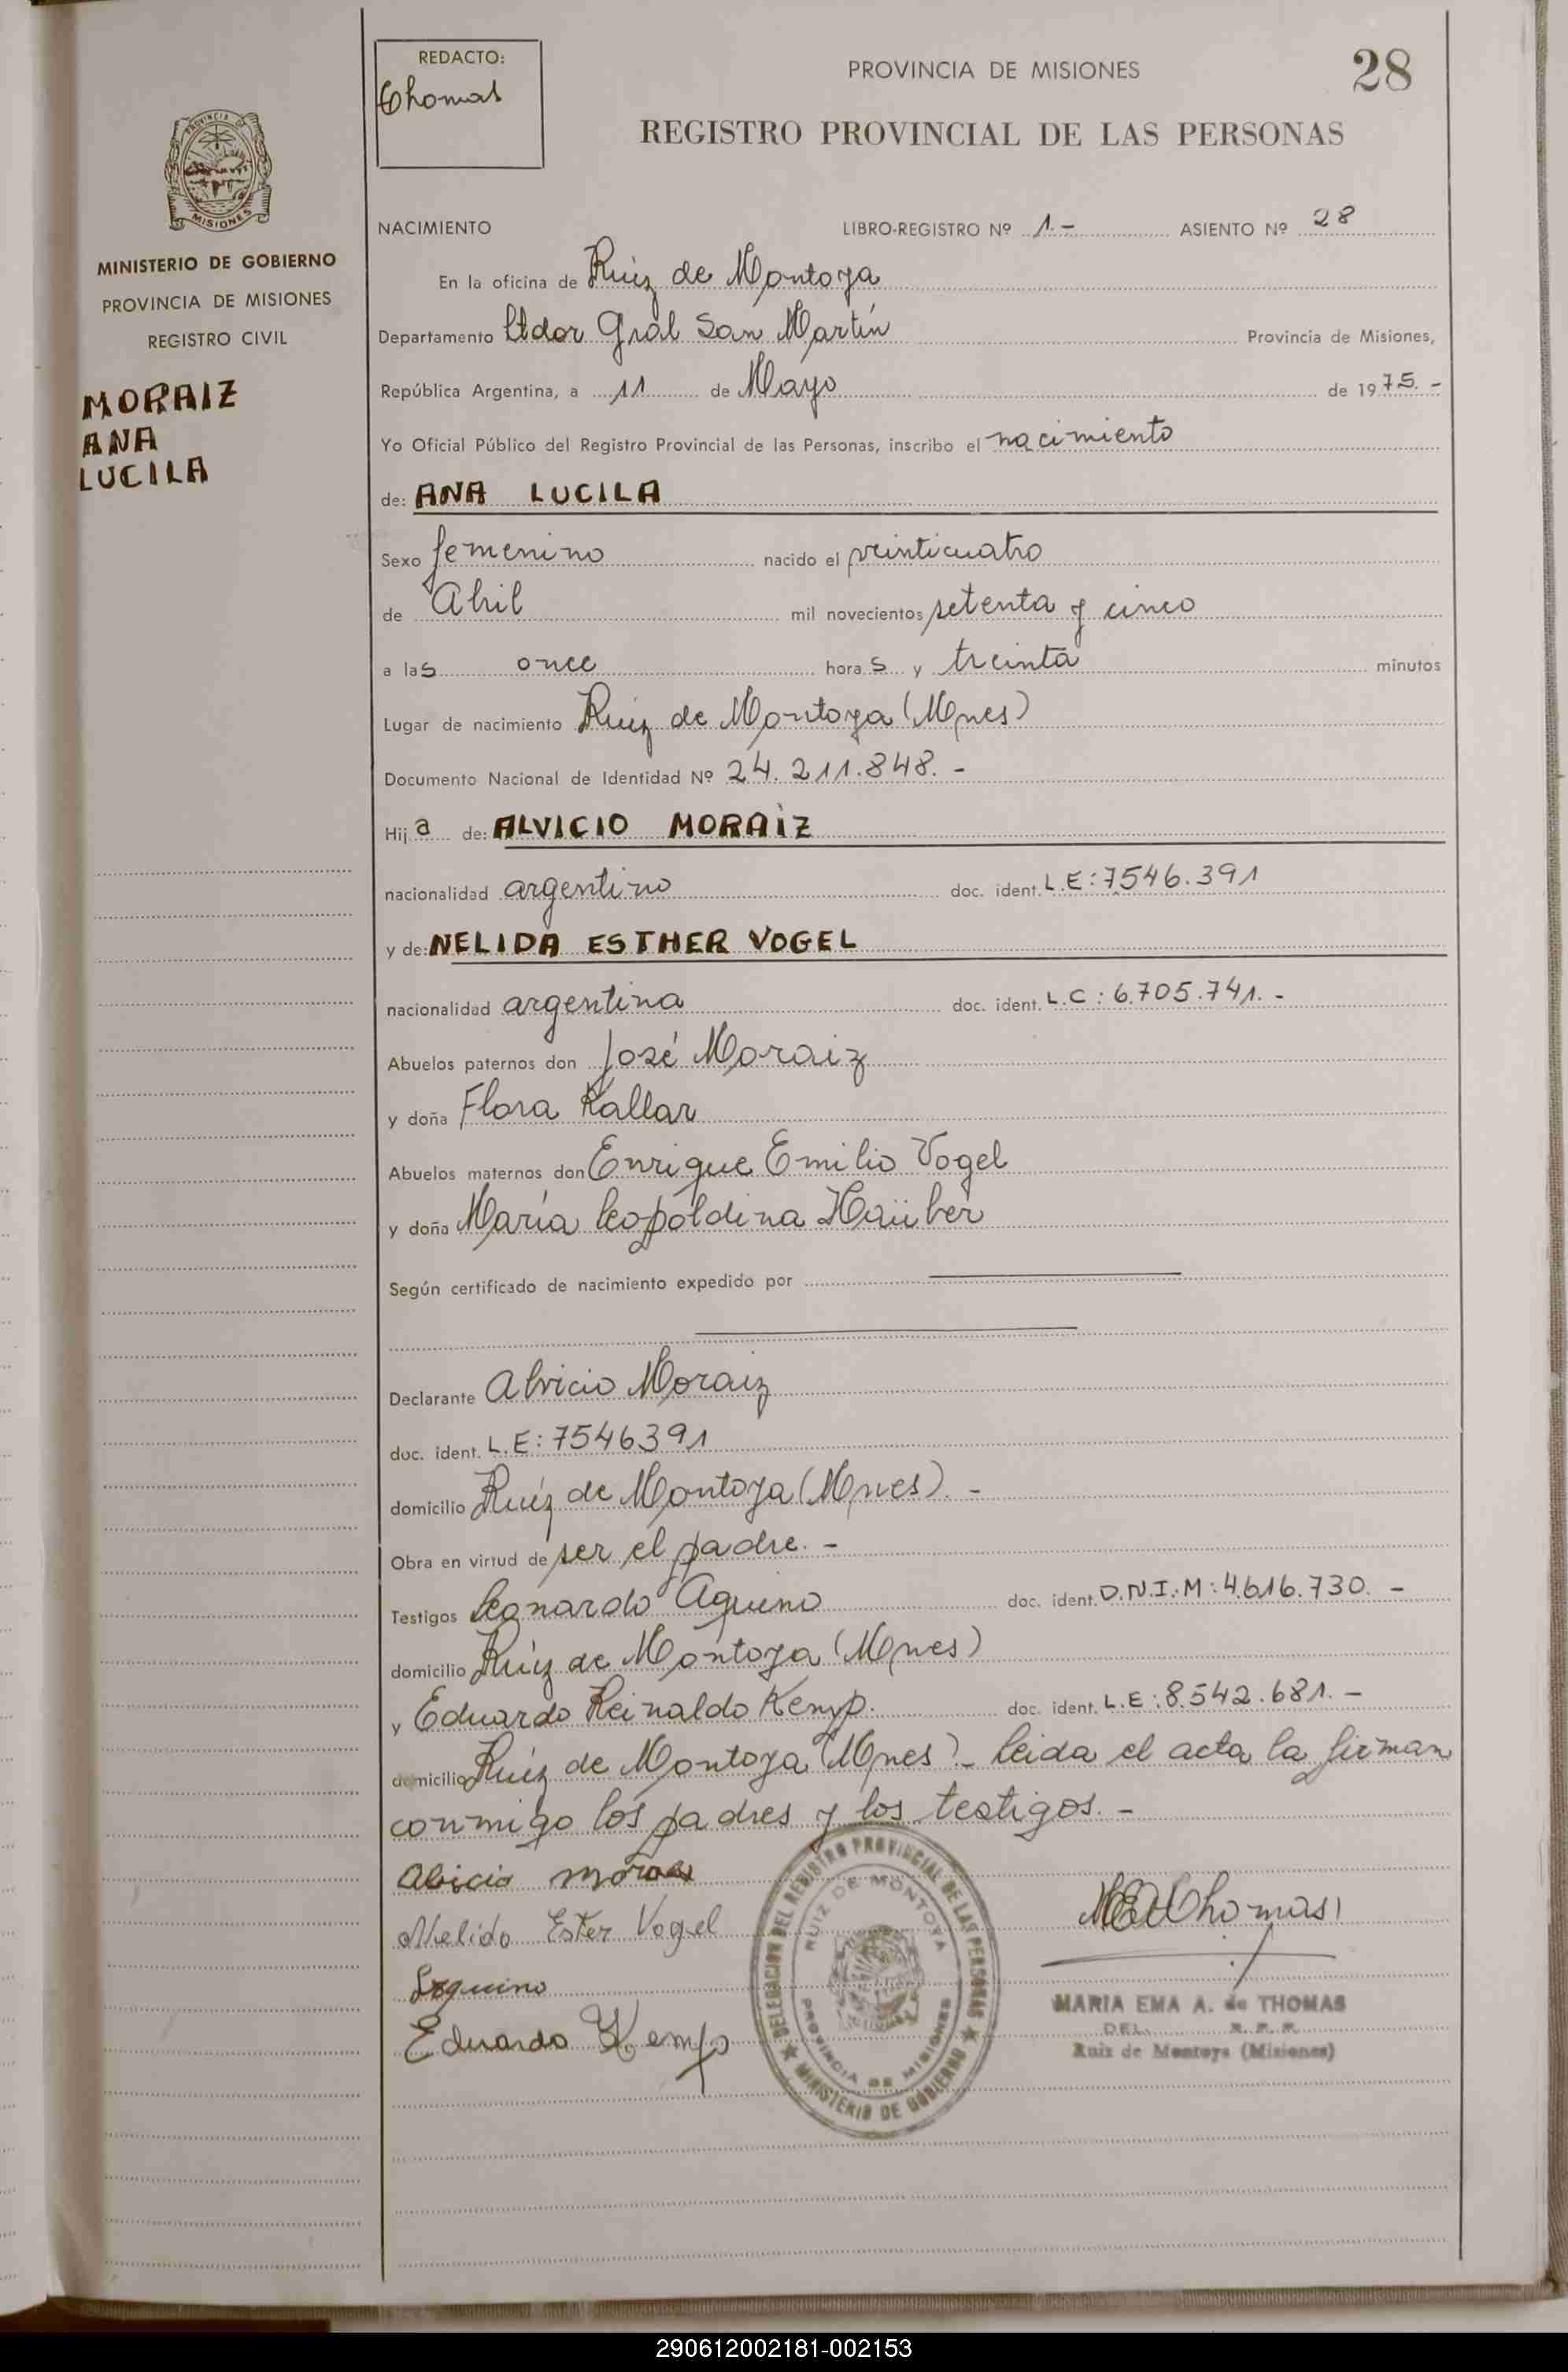 REDACTO:
Thomas
PROVINCIA DE MISIONES
28
REGISTRO PROVINCIAL DE LAS PERSONAS
PROVINCIA DE
MISIONES
MINISTERIO DE GOBIERNO
PROVINCIA DE MISIONES
REGISTRO CIVIL
MORAIZ
ANA
LUCILA
NACIMIENTO LIBRO-REGISTRO Nº 1.- ASIENTO Nº 28
En la oficina de Ruiz de Montoya
Departamento Ltdor Gral San Martín Provincia de Misiones,
República Argentina, a 11 de Mayo de 1975.-
Yo Oficial Público del Registro Provincial de las Personas, inscribo el nacimiento
de: ANA LUCILA
Sexo femenino nacido el veinticuatro
de Abril mil novecientos setenta y cinco
a las once horas y treinta minutos
Lugar de nacimiento Ruiz de Montoya (Mnes)
Documento Nacional de Identidad Nº 24.211.848.-
Hija de: ALVICIO MORAIZ
nacionalidad argentino doc. ident. L.E: 7546.391
y de: NELIDA ESTHER VOGEL
nacionalidad argentina doc. ident. L.C: 6.705.741.-
Abuelos paternos don José Moraiz
y doña Flora Kallar
Abuelos maternos don Enrique Emilio Vogel
y doña María Leopoldina Haüber
Según certificado de nacimiento expedido por
Declarante Alvicio Moraiz
doc. ident. L.E: 7546391
domicilio Ruíz de Montoya (Mnes).-
Obra en virtud de ser el padre.-
Testigos Leonardo Aquino doc. ident. D.N.I.M: 4.616.730.-
domicilio Ruíz de Montoya (Mnes)
y Eduardo Reinaldo Kemp. doc. ident. L.E: 8.542.681.-
domicilio Ruíz de Montoya (Mnes)- Leida el acta la firman
conmigo los padres y los testigos.-
Nelida Ester Vogel
Eduardo Kemp
Thomas
DELEGACION DEL REGISTRO PROVINCIAL DE LAS PERSONAS
RUIZ DE MONTOYA
PROVINCIA DE MISIONES
MINISTERIO DE GOBIERNO
MARIA EMA A. de THOMAS
DEL. R. P. P.
Ruiz de Montoya (Misiones)
290612002181-002153